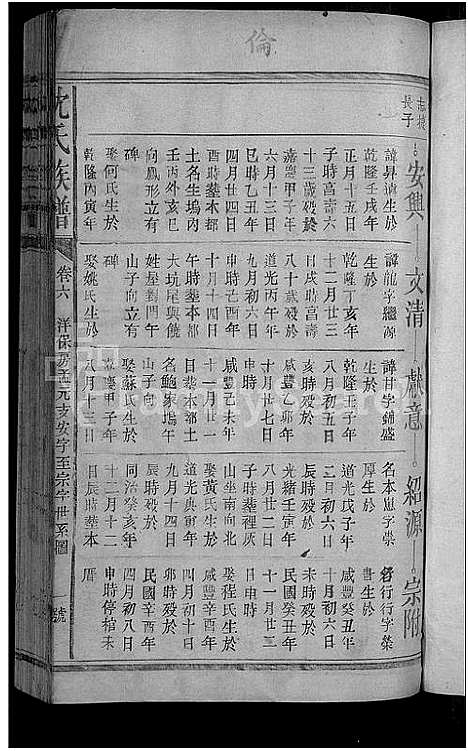 倫
志捷
長子
安興
文清
獻意
紹源
宗附
諱昇迪生於
乾隆壬戌年
正月十五日
子時高壽六
十三歲殁於
嘉慶甲子年
六月十三日
巳時乙丑年
四月廿四日
酉時塟本都
土名生塢內
壬丙外亥巳
向鳳形立有
碑
娶何氏生於
乾隆丙寅年
諱龍字
生於
乾隆丁亥年
十二月廿三
日戌時高壽
八十歲殁於
道光丙午年
九月初六日
申時己酉年
十月十四日
午時塟本都
大坑尾與饒
姓屋對門午
山子向立有
碑
娶姚氏生於
諱甘字錦盛
生於
乾隆壬子年
八月初五日
亥時殁於
咸豐乙卯年
十月廿七日
申時
咸豐己未年
十一月廿一
日塟本都土
名鮑家塢午
山子向
娶蘇氏生於
嘉慶甲子年
八月十三日
名本崽字崇
厚生於
道光戊子年
二月初六日
辰時殁於
光緒壬寅年
八月廿二日
子時塟裡厝
山坐南向北
娶黃氏生於
道光庚寅年
九月十四日
戌時殁於
同治癸亥年
十二月十二
日辰時塟本
名行行字榮
書生於
咸豐癸丑年
十月初六日
未時殁於
民國癸丑年
十一月廿三
日申時
娶程氏生於
咸豐壬子年
四月初十日
卯時殁於
民國辛酉年
四月初八日
申時停棺末
厝
沈氏族譜
卷六
洋保房
元支安字至宗字世系圖
號